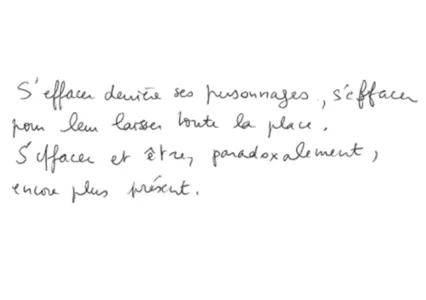 S'effacer derrière ses personnages, s'effacer
pour leur laisser toute la place.
S'effacer et être, paradoxalement,
encore plus présent.